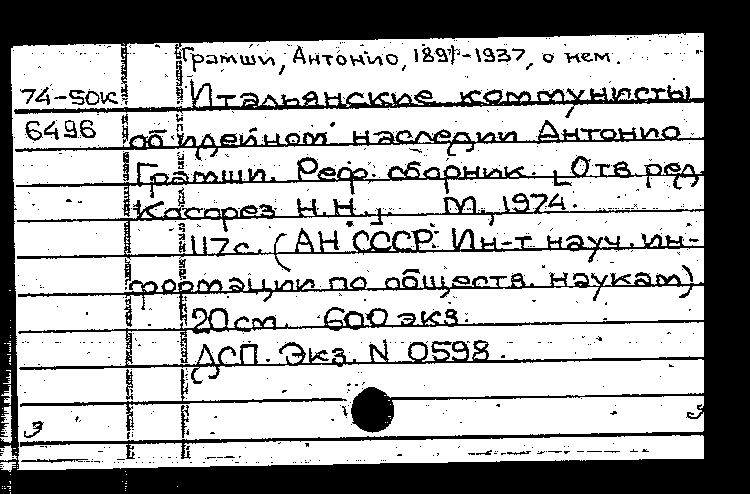 Грамши, Антонио, 1891-1937, о нем.
74-50к Итальянские коммунисты
6496 об идейном наследии Антонио
Грамши. Реф. сборник. [Отв. ред.
Косорез Н.Н.]. М., 1974.
117с. (АН СССР. Ин-т науч. ин-
формации по обществ. наукам).
20см. 600 экз.
ДСП. Экз. N 0598.
э э